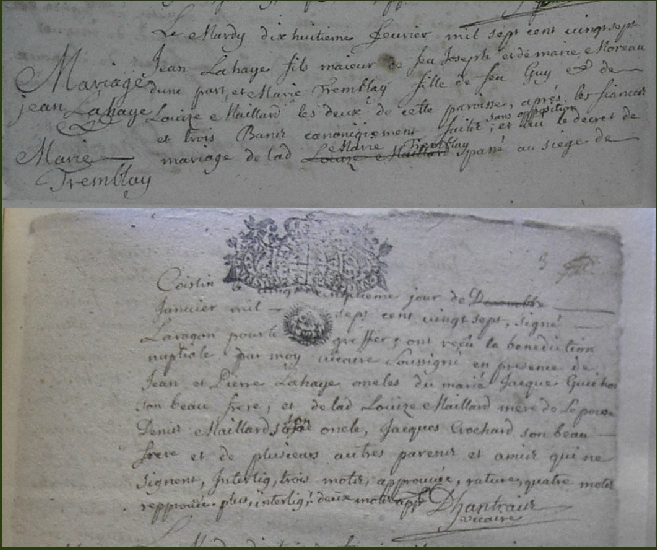 Le Mardy dix huitieme feurier mil sept cent vingt sept
Mariage
jean Lahaye
Marie
Tremblay
Jean Lahaye fils maieur de feu Joseph et de marie Moreau
dune part, et Marie Tremblay fille de feu Guy et de
Louize Maillard les deux de cette paroisse, apres les fiancès
sans opposition
et trois Bancs canoniquement faites, et veu le decret de
Marie Tremblay
mariage de lad Louize Maillard passé au siege de
Coistin
jour de Decembre
Janvier mil sept cent vingt sept, signé
Laragon pour le greffier; ont reçu la benediction
nuptiale par moy vicaire soussigné en presence de
Jean et Pierre Lahaye oncles du marié Jacque
son beau frere, et de lad Louize Maillard mere de
Denis Maillard oncle, Jacques Crochard son beau
frere et de plusieurs autres parens et amis qui ne
signent, interlig, trois mots, approuvée, rature, quatre mots
reprouvée plus, interlig, deux mots app
Dhantraur
vicaire